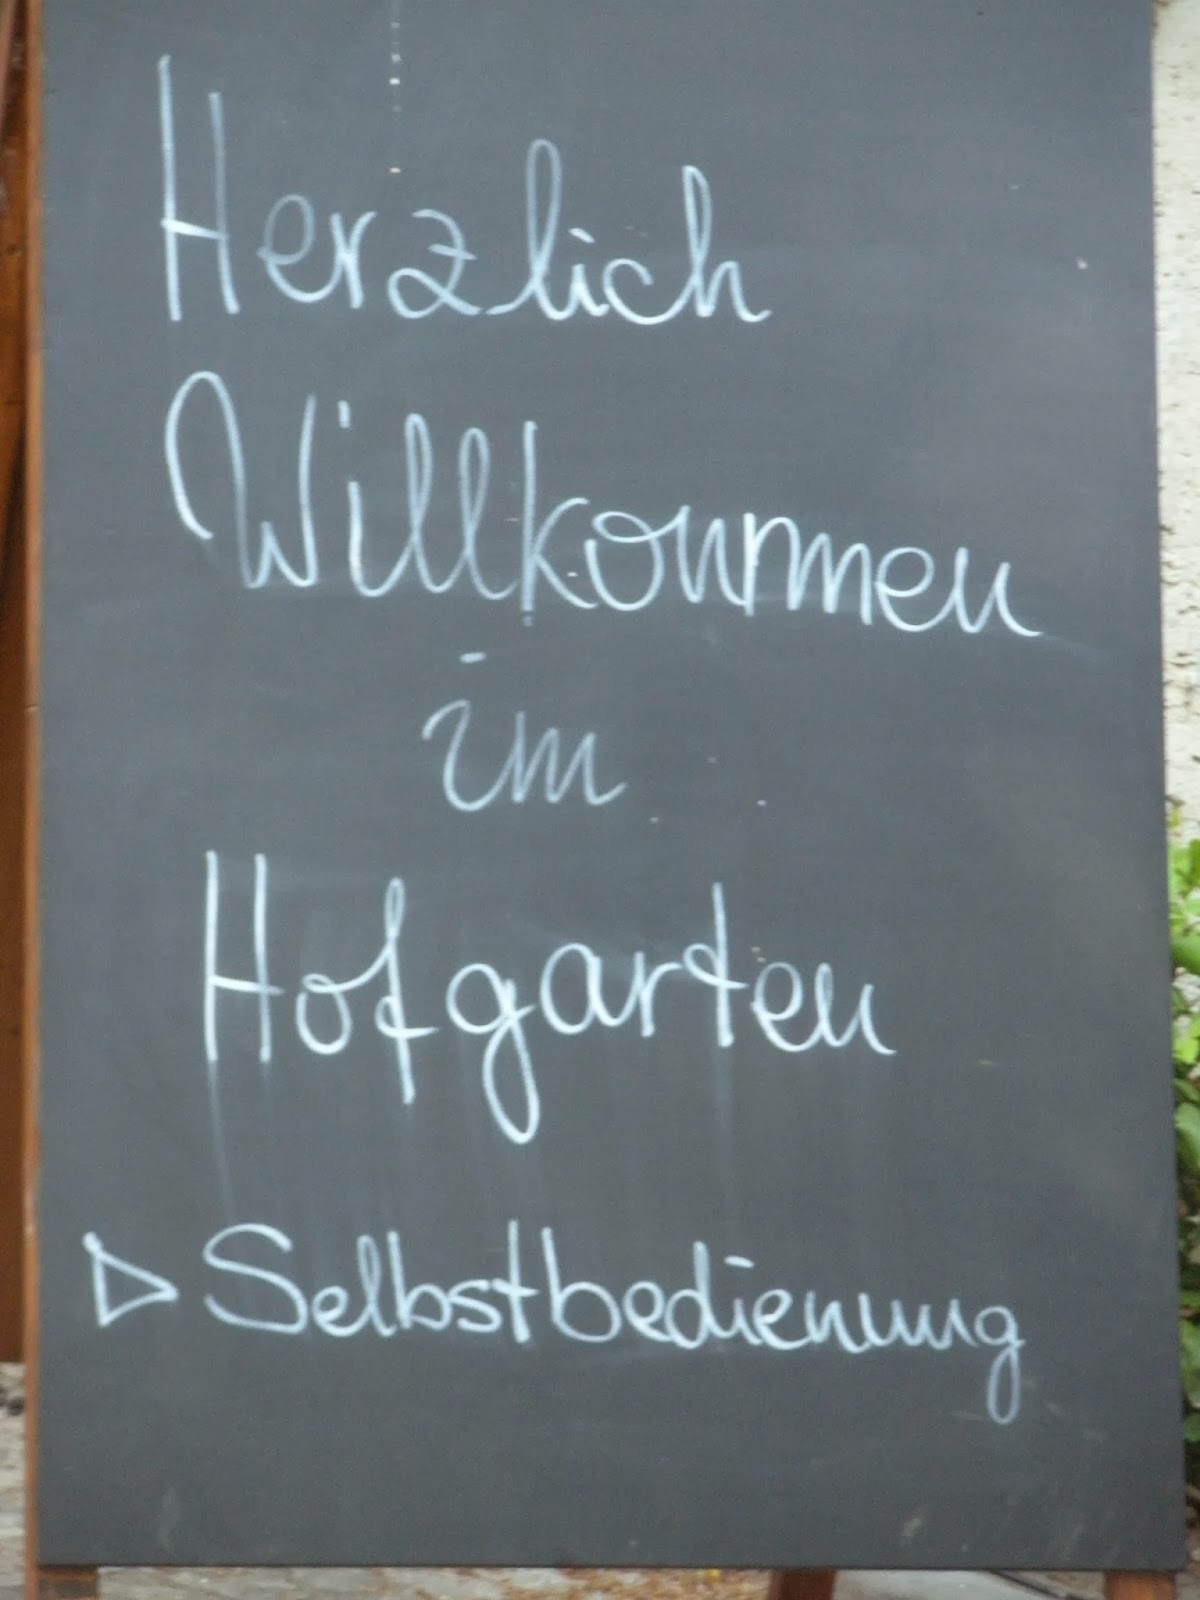 Herzlich
Willkommen
im
Hofgarten
▷ Selbstbedienung